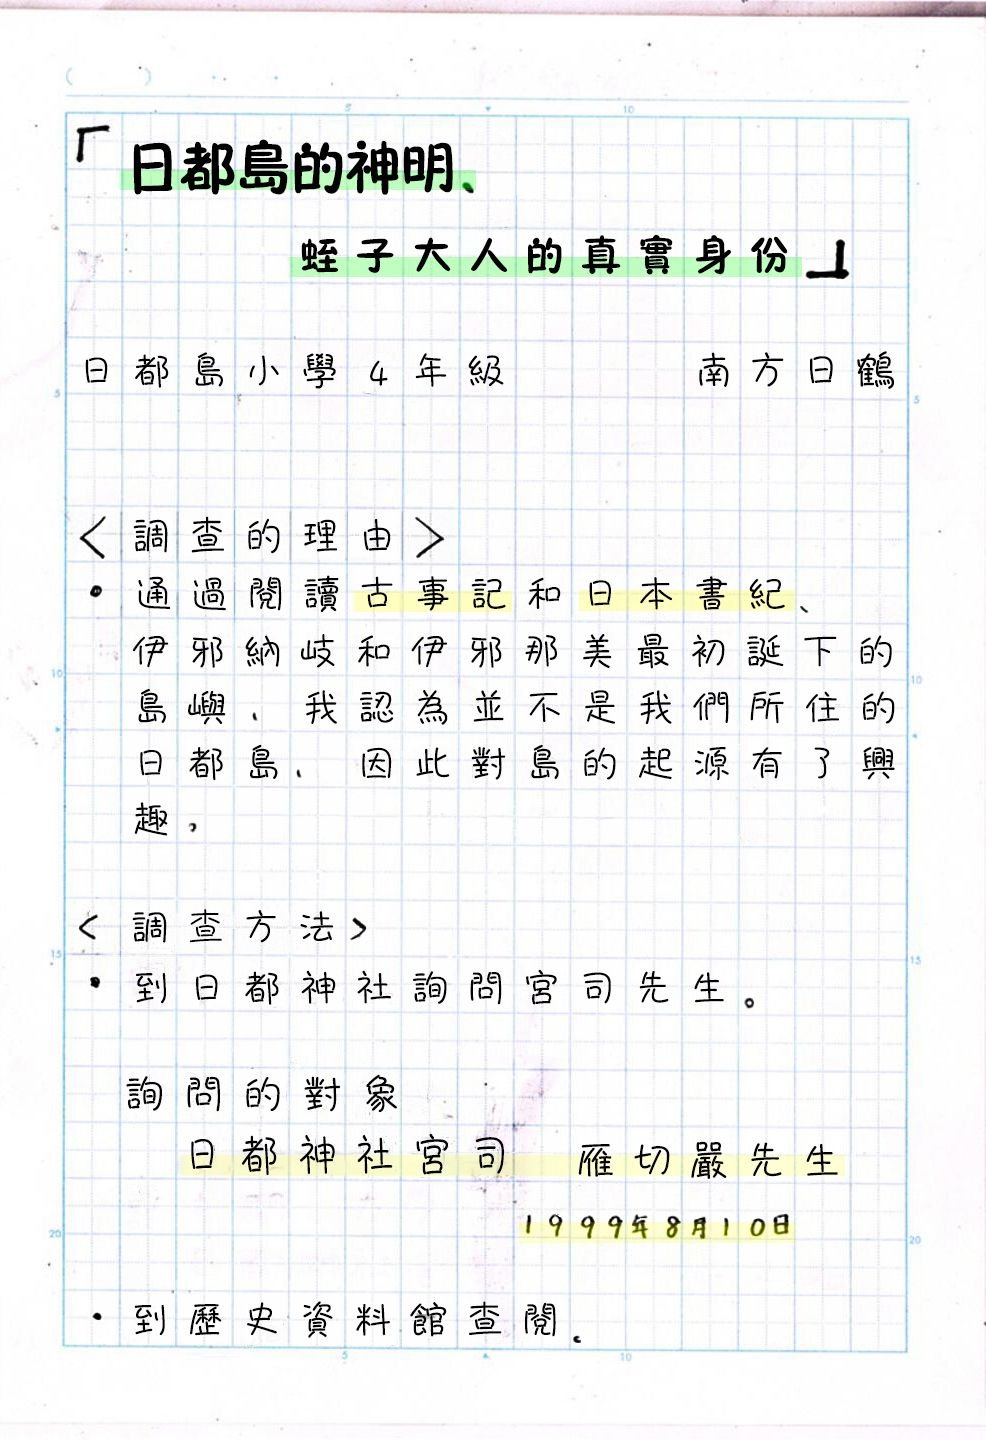 「日都島的神明、
蛭子大人的真實身份」
日都島小學4年級 南方日鶴
<調查的理由>
・通過閱讀古事記和日本書紀、
伊邪納岐和伊邪那美最初誕下的
島嶼、我認為並不是我們所住的
日都島、因此對島的起源有了興
趣,
<調查方法>
・到日都神社詢問宮司先生。
詢問的對象
日都神社宮司 雁切嚴先生
1999年8月10日
・到歷史資料館查閱.
5 10
5 5
10 10
15 15
20 20
5 10